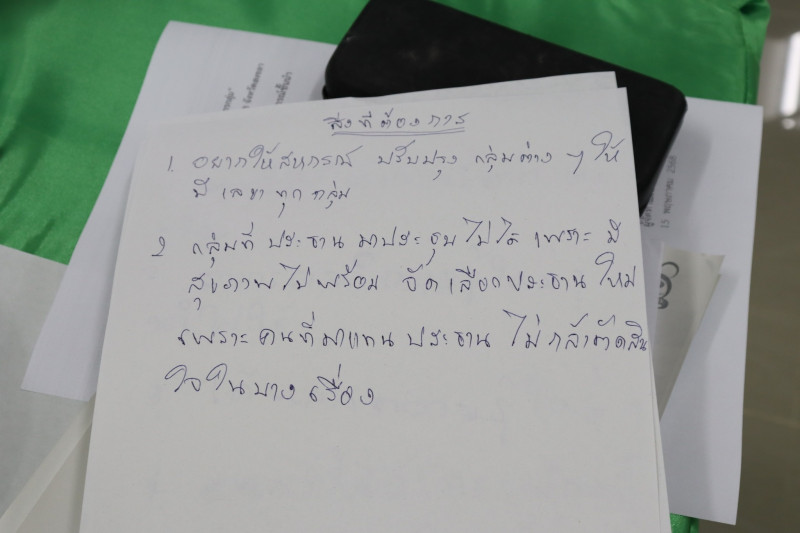 สิ่งที่ต้องการ
1. อยากให้สหกรณ์ ปรับปรุง กลุ่มต่าง ๆ ให้
มี เลขา ทุก กลุ่ม
2 กลุ่มที่ ประธาน มาประชุม ไม่ได้ เพราะ มี
สุขภาพ ไม่ พร้อม จัด เลือก ประธาน ใหม่
เพราะ คนที่ มาแทน ประธาน ไม่ กล้าตัดสิน
ใจ ในบาง เรื่อง
13 พฤษภาคม 2568